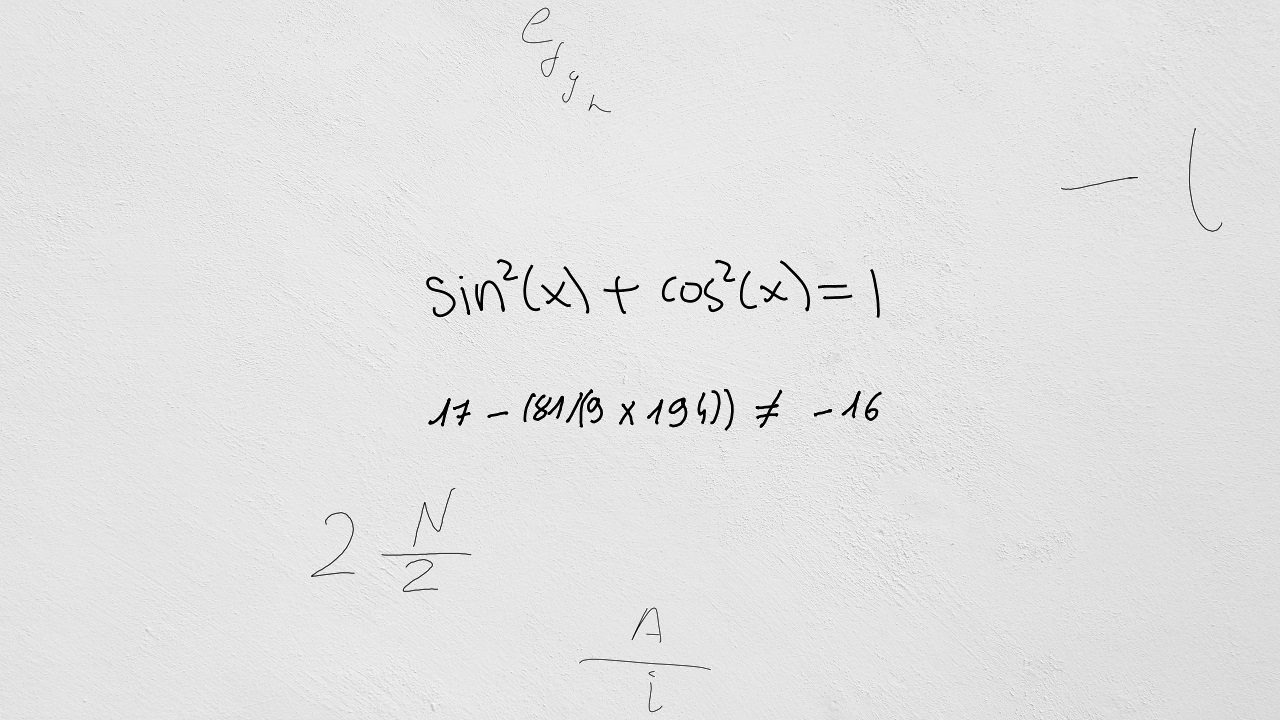 e g y h
- l
sin²(x) + cos²(x) = 1
17 - (81/(9 x 194)) ≠ -16
2 N/2
A/i